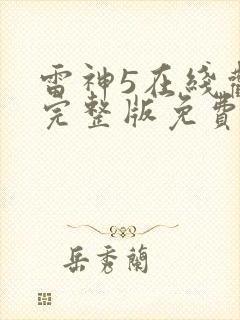 雷神5在綫觀
完整版免費
岳秀蘭